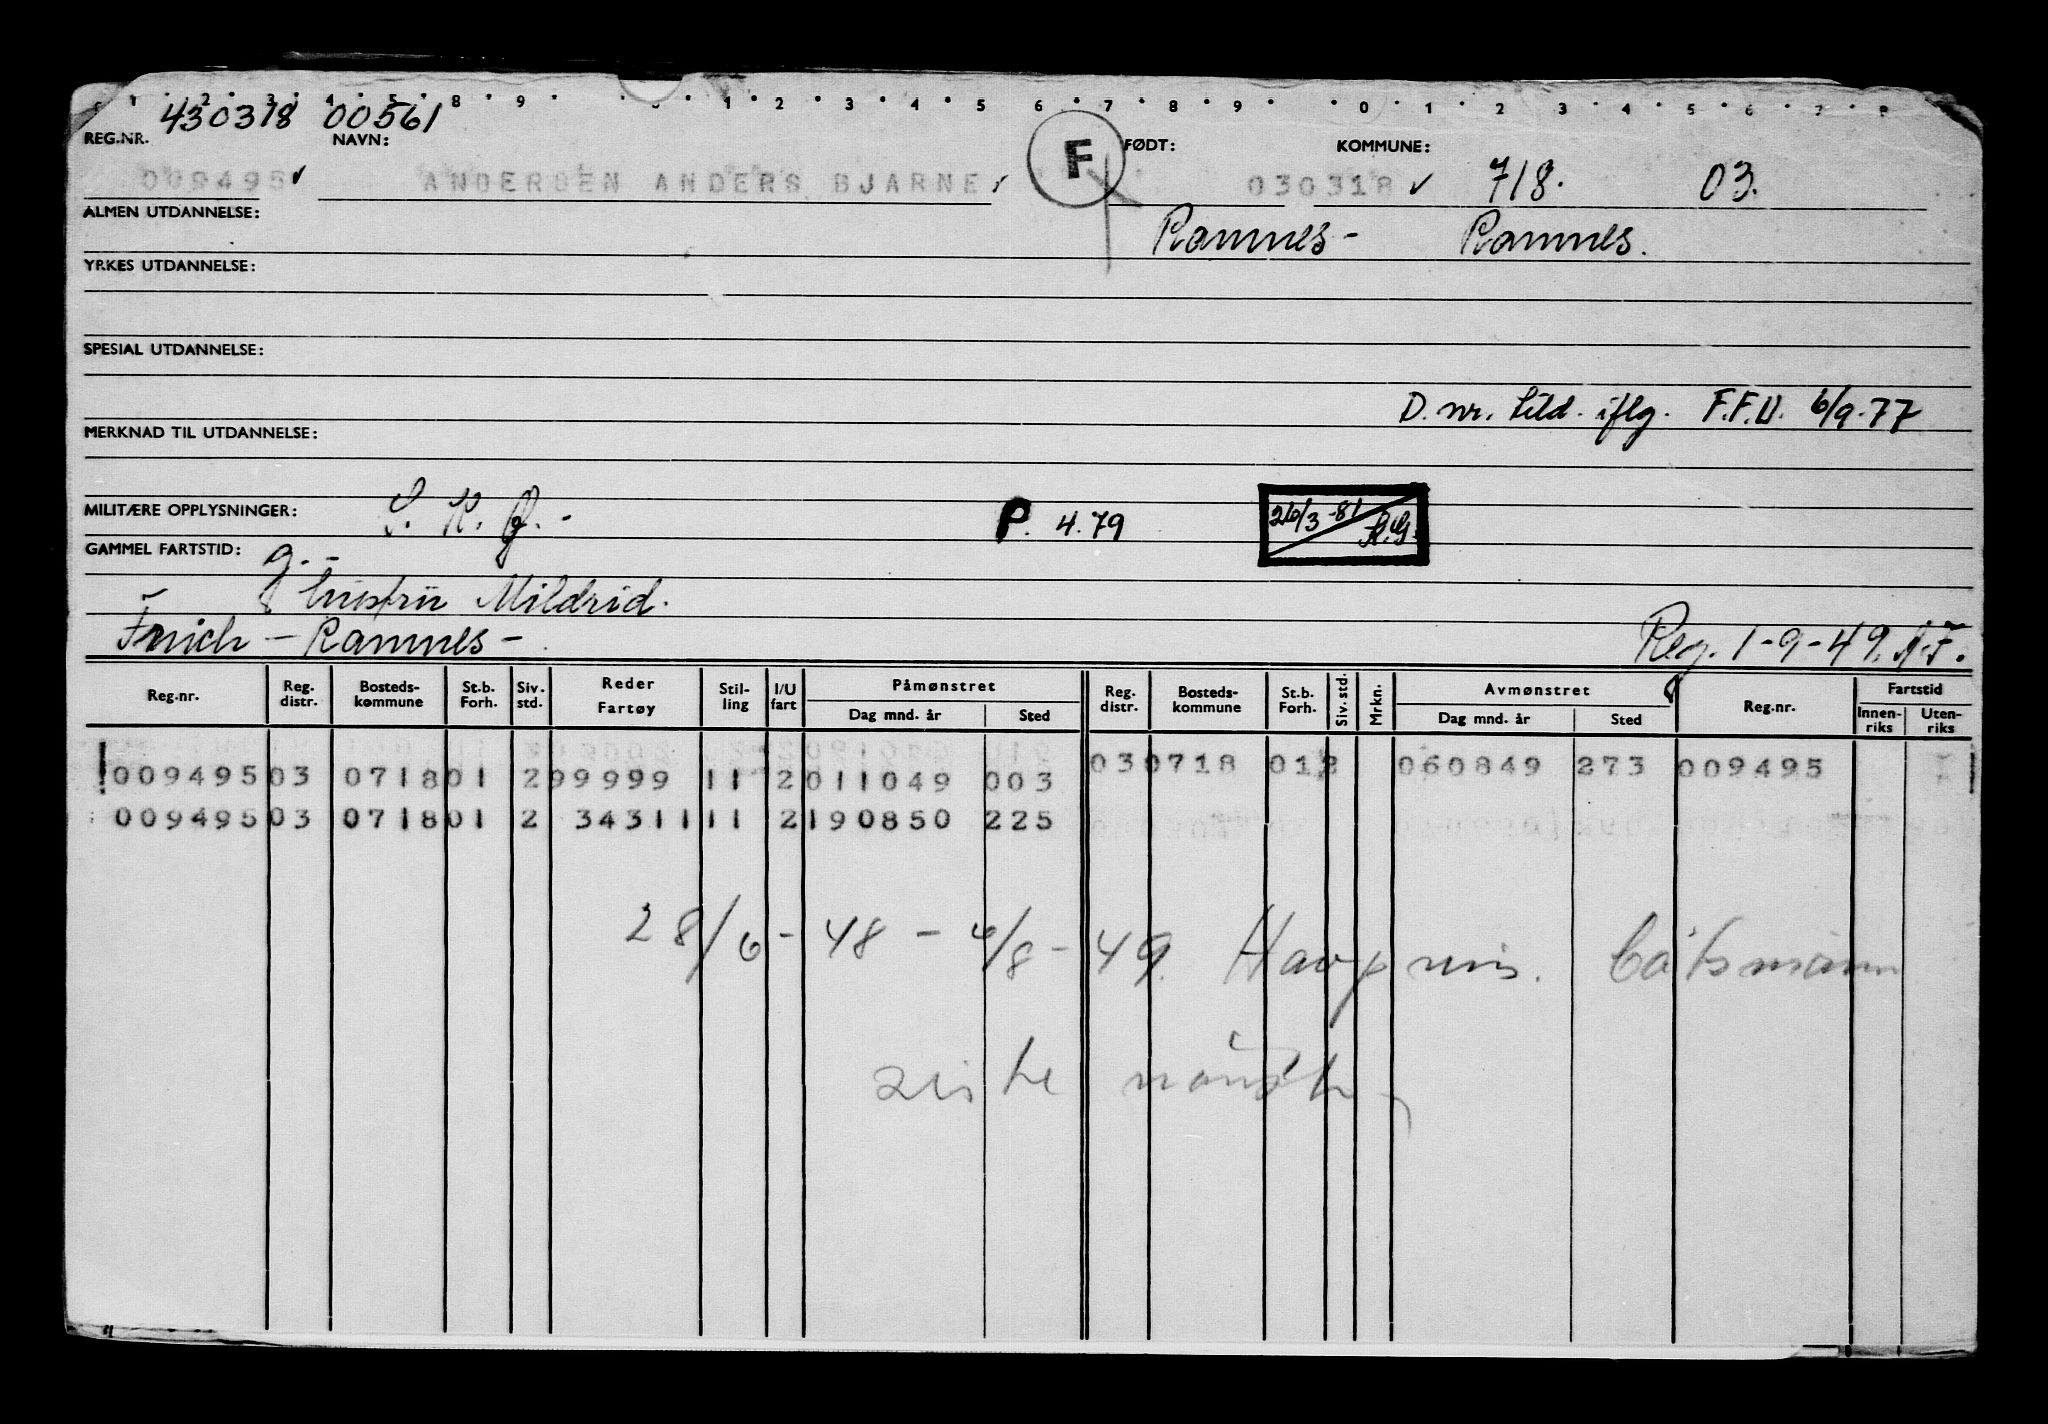 1 2 3 4 5 8 9 1 2 3 4 5 6 7 8 9 0 1 2 3 4 5 6 7 8
430318 00561
REG.NR. NAVN: F FØDT: KOMMUNE:
009495 ✓ ANDERSEN ANDERS BJARNE ✓ 030318 ✓ 718. 03.
ALMEN UTDANNELSE: Ramnes - Ramnes.
YRKES UTDANNELSE:
SPESIAL UTDANNELSE:
D. nr. tild. iflg. F.F.D. 6/9.77
MERKNAD TIL UTDANNELSE:
MILITÆRE OPPLYSNINGER: S. K. Ø. - P. 4.79 26/3-81 R.G.
GAMMEL FARTSTID: g. -
hustru Mildrid.
- Ramnes - Reg. 1-9-49. A.F.
Reg.nr. Reg. distr. Bosteds-kommune St.b. Forh. Siv. std. Reder Fartøy Stil-ling I/U fart Påmønstret Dag mnd. år Sted Reg. distr. Bosteds-kommune St.b. Forh. Siv. std. Mrkn. Avmønstret Dag mnd. år Sted Reg.nr. Fartstid Innen-riks Uten-riks
030718 012 060849 273 009495
009495 03 0718 01 2 99999 11 2 011049 003
009495 03 0718 01 2 34311 11 2 190850 225
28/6 - 48 - 6/8 - 49. Havprins. båtsmann
siste mønstr.